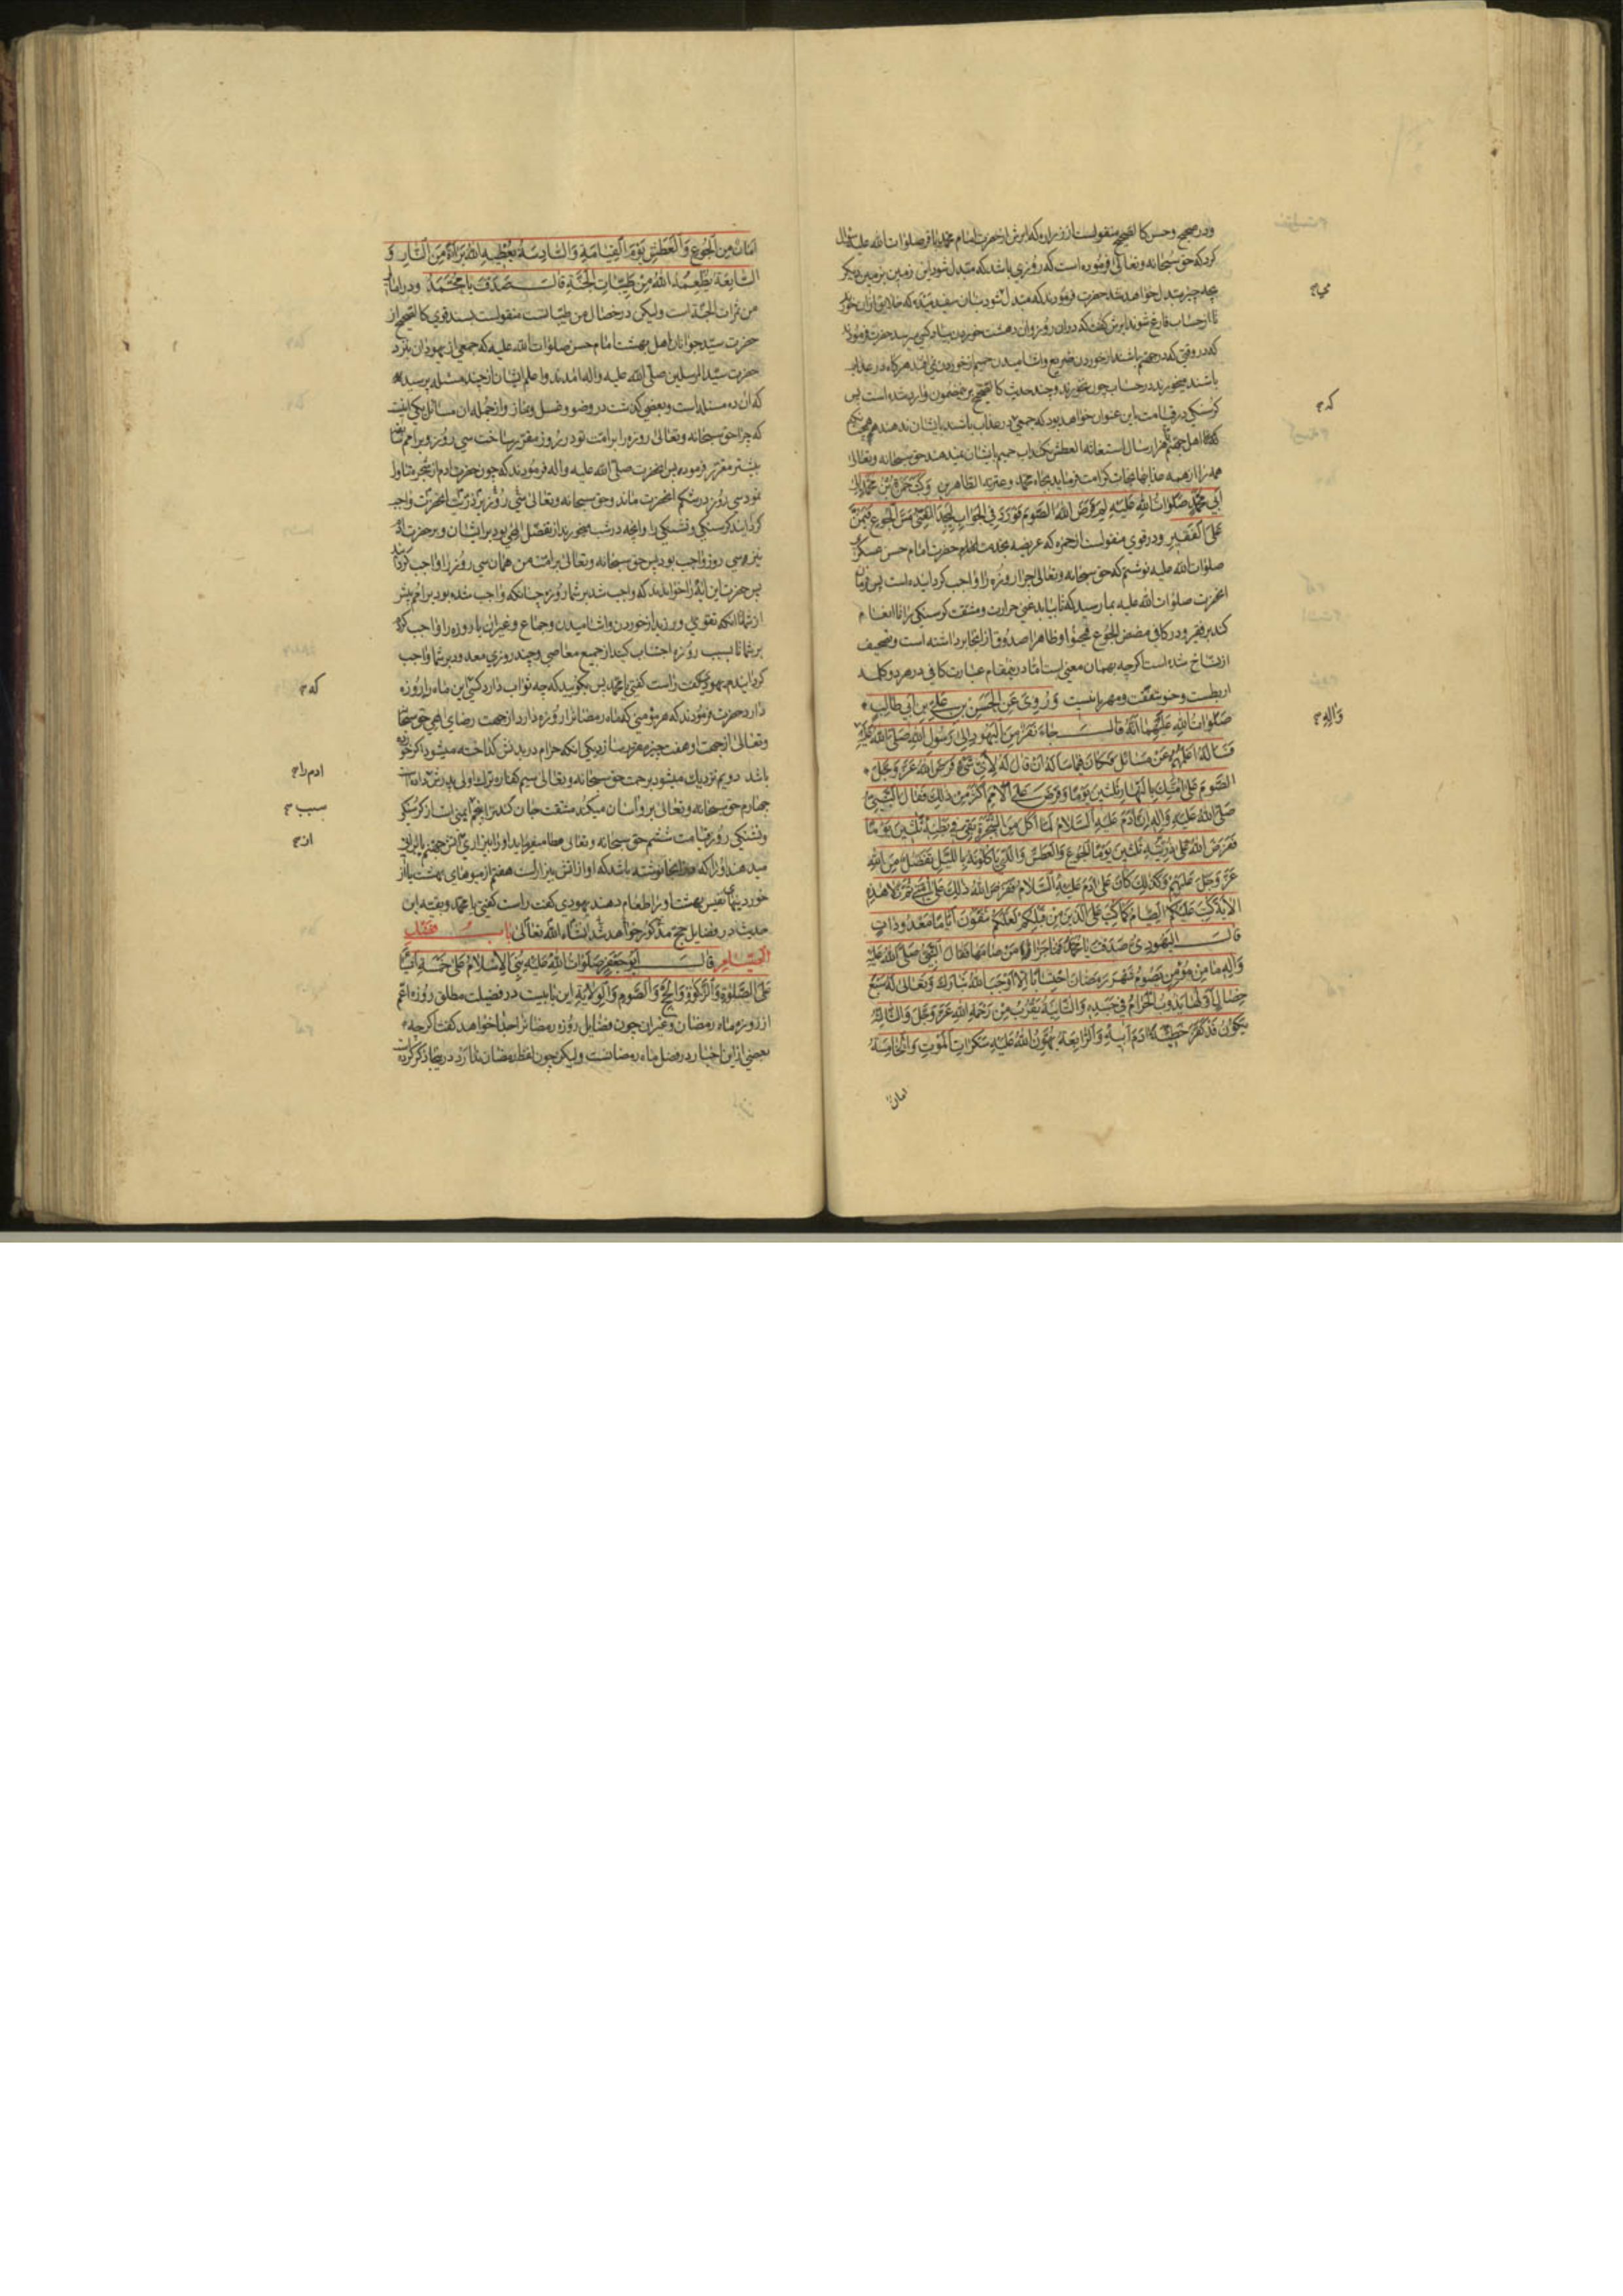 ودر صحیح وحسن کالصحیح منقولست از زراره که ابرش از حضرت امام محمد باقر صلوات الله علیه سؤال
کرد که حق سبحانه وتعالی فرموده است که روزی باشد که متبدل شود این زمین بزمین دیکر
بچه چیز متبدل خواهد شد حضرت فرمودند که متبدل شود بنان سفید که خلایق ازان خورند
تا از حساب فارغ شوند ابرش کفت که دران روز وان دهشت خوردن بیاد کسی میرسد حضرت فرمودند
که در وقتی که در جهنم باشند از خوردن ضریع واشامیدن حمیم از خوردن نمی افتند هرکاه در عذاب
باشند میخورند در حساب چون نخورند وچند حدیث کالصحیح برین مضمون وارد شده است پس
کرسنکی در قیامت باین عنوان خواهد بود که جمعی در عذاب باشند بایشان ندهند همچنانکه
که اهل جهنم هزار سال استغاثه العطش میکنند اب حمیم بایشان میدهند حق سبحانه وتعالی
همه را از همه عذابها نجات کرامت فرماید بجاه محمد وعترته الطاهرین وَكَتَبَ حَمْزَةُ بْنُ مُحَمَّدٍ اِلىٰ
اَبي مُحَمَّدٍ صَلَوَاتُ اللهِ عَلَيْهِ لِمَ فَرَضَ اللهُ الصَّوْمَ فَوَرَدَ فِي الْجَوَابِ لِيَجِدَ الْغَنِيُّ مَسَّ الْجُوعِ فَيَمُنَّ
عَلَى الْفَقِيرِ ودر قوی منقولست از حمزه که عریضه بخدمت اقدس حضرت امام حسن عسکری
صلوات الله علیه نوشتم که حق سبحانه وتعالی چرا روزه را واجب کردانیده است پس فرمان
انحضرت صلوات الله علیه بما رسید که تا بیابد غنی حرارت ومشقت کرسنکی را تا انعام
کند بر فقیر ودر کافی مضض الجوع فیحنو وظاهرا صدوق از انجا برداشته است وتصحیف
از نساخ شده است اکرچه بهمان معنی است اما درینمقام عبارت کافی در هر دو کلمه
اربطست وحنو بتعقت ومهربانیست وَرُوِيَ عَنِ الْحَسَنِ بْنِ عَلِيِّ بْنِ اَبي طَالِبٍ
صَلَوَاتُ اللهِ عَلَيْهِمَا اَنَّهُ قَالَ جَاءَ نَفَرٌ مِنَ الْيَهُودِ اِلىٰ رَسُولِ اللهِ صَلَّى اللهُ عَلَيْهِ
فَسَأَلَهُ اَعْلَمُهُمْ عَنْ مَسَائِلَ فَكَانَ فِيمَا سَأَلَهُ اَنْ قَالَ لَهُ لِاَيِّ شَيْءٍ فَرَضَ اللهُ عَزَّ وَجَلَّ
الصَّوْمَ عَلىٰ اُمَّتِكَ بِالنَّهَارِ ثَلٰثِينَ يَوْمًا وَفَرَضَ عَلَى الْاُمَمِ اَكْثَرَ مِنْ ذٰلِكَ فَقَالَ النَّبِيُّ
صَلَّى اللهُ عَلَيْهِ وَاٰلِهِ اِنَّ اٰدَمَ عَلَيْهِ السَّلَامُ لَمَّا اَكَلَ مِنَ الشَّجَرَةِ بَقِيَ فِي بَطْنِهِ ثَلٰثِينَ يَوْمًا
فَفَرَضَ اللهُ عَلىٰ ذُرِّيَّتِهِ ثَلٰثِينَ يَوْمًا الْجُوعَ وَالْعَطَشَ وَالَّذِي يَأْكُلُونَهُ بِاللَّيْلِ تَفَضُّلٌ مِنَ اللهِ
عَزَّ وَجَلَّ عَلَيْهِمْ وَكَذٰلِكَ كَانَ عَلىٰ اٰدَمَ عَلَيْهِ السَّلَامُ فَفَرَضَ اللهُ ذٰلِكَ عَلىٰ اُمَّتِي ثُمَّ تَلَا هٰذِهِ
الْاٰيَةَ كُتِبَ عَلَيْكُمُ الصِّيَامُ كَمَا كُتِبَ عَلَى الَّذِينَ مِنْ قَبْلِكُمْ لَعَلَّكُمْ تَتَّقُونَ اَيَّامًا مَعْدُودَاتٍ
قَالَ الْيَهُودِيُّ صَدَقْتَ يَا مُحَمَّدُ فَمَا جَزَاءُ مَنْ صَامَهَا فَقَالَ النَّبِيُّ صَلَّى اللهُ عَلَيْهِ
وَاٰلِهِ مَا مِنْ مُؤْمِنٍ يَصُومُ شَهْرَ رَمَضَانَ احْتِسَابًا اِلَّا اَوْجَبَ اللهُ تَبَارَكَ وَتَعَالىٰ لَهُ سَبْعَ
خِصَالٍ اَوَّلُهَا يَذُوبُ الْحَرَامُ فِي جَسَدِهِ وَالثَّانِيَةُ يَقْرُبُ مِنْ رَحْمَةِ اللهِ عَزَّ وَجَلَّ وَالثَّالِثَةُ
يَكُونُ قَدْ كَفَّرَ خَطِيئَةَ اٰدَمَ اَبِيهِ وَالرَّابِعَةُ يُهَوِّنُ اللهُ عَلَيْهِ سَكَرَاتِ الْمَوْتِ وَالْخَامِسَةُ
امان
که
وَاٰلِهِ
اَمَانٌ مِنَ الْجُوعِ وَالْعَطَشِ يَوْمَ الْقِيَامَةِ وَالسَّادِسَةُ يُعْطِيهِ اللهُ بَرَاءَةً مِنَ النَّارِ وَ
السَّابِعَةُ يُطْعِمُهُ اللهُ مِنْ طَيِّبَاتِ الْجَنَّةِ قَالَ صَدَقْتَ يَا مُحَمَّدُ ودر امالی
من ثمرات الجنة است ولیکن در خصال من طیباتست منقولست بسند قوی کالصحیح از
حضرت سید جوانان اهل بهشت امام حسن صلوات الله علیه که جمعی از یهودان بنزد
حضرت سید المرسلین صلّی الله علیه واله امدند واعلم ایشان از چند مسئله پرسید
که ان ده مسئله است وبعضی کذشت در وضو وغسل ونماز وازجمله ان مسائل یکی اینست
که چرا حق سبحانه وتعالی روزه را بر امت تو در روز مقرر ساخت سی روز وبر امم سابق
بیشتر مقرر فرموده پس انحضرت صلّی الله علیه واله فرمودند که چون حضرت ادم از شجره تناول
نمود سی روز در شکم انحضرت ماند وحق سبحانه وتعالی سی روز بر ذریّت انحضرت واجب
کردانید کرسنکی وتشنکی را وانچه در شب میخورند از تفضّل الهی بود بر ایشان وبر حضرت ادم
نیز سی روز واجب بود پس حق سبحانه وتعالی بر امت من همان سی روز را واجب کردانید
پس حضرت این ایه را خواندند که واجب شد بر شما روزه چنانکه واجب شده بود بر امم پیش
از شما تا انکه تقوی ورزید از خوردن واشامیدن وجماع وغیر ان یا روزه را واجب کرد
بر شما تا بسبب روزه اجتناب کنید از جمیع معاصی وچند روزی معدود بر شما واجب
کردانیدم یهودی کفت راست کفتی یا محمد پس بکوئید که چه ثواب دارد کسی این ماه را روزه
دارد حضرت فرمودند که هر مؤمنی که ماه رمضان را روزه دارد از جهت رضای الهی حق سبحانه
وتعالی از جهت او هفت چیز مقرر سازد یکی انکه حرام در بدنش کداخته میشود اکر خورده
باشد دویم نزدیک میشود برحمت حق سبحانه وتعالی سیم کفاره ترک اولی پدرش داده است
چهارم حق سبحانه وتعالی بر او اسان میکند مشقت جان کندن را پنجم ایمنی است از کرسنکی
وتشنکی روز قیامت ششم حق سبحانه وتعالی عطا میفرماید او را بیزاری اتش جهنم یا براتی
میدهند او را که در انجا نوشته باشد که او از اتش بیزار است هفتم از میوهای بهشت یا از
خوردنیهای نفیس بهشت او را طعام دهند یهودی کفت راست کفتی یا محمد وبقیه این
حدیث در فضایل حج مذکور خواهد شد انشاء الله تعالی بَابُ فَضْلِ
الصِّيَامِ قَالَ اَبُو جَعْفَرٍ صَلَوَاتُ اللهِ عَلَيْهِ بُنِيَ الْاِسْلَامُ عَلىٰ خَمْسَةِ اَشْيَاءَ
عَلَى الصَّلٰوةِ وَالزَّكٰوةِ وَالْحَجِّ وَالصَّوْمِ وَالْوِلَايَةِ این بابیست در فضیلت مطلق روزه اعم
از روزه ماه رمضان وغیر ان چون فضایل روزه رمضان را جدا خواهد کفت اکرچه
بعضی از این اخبار در فضل ماه رمضانست ولیکن چون لفظ رمضان ندارد درینجا ذکر کرده است
که
ادم را
بسبب
از